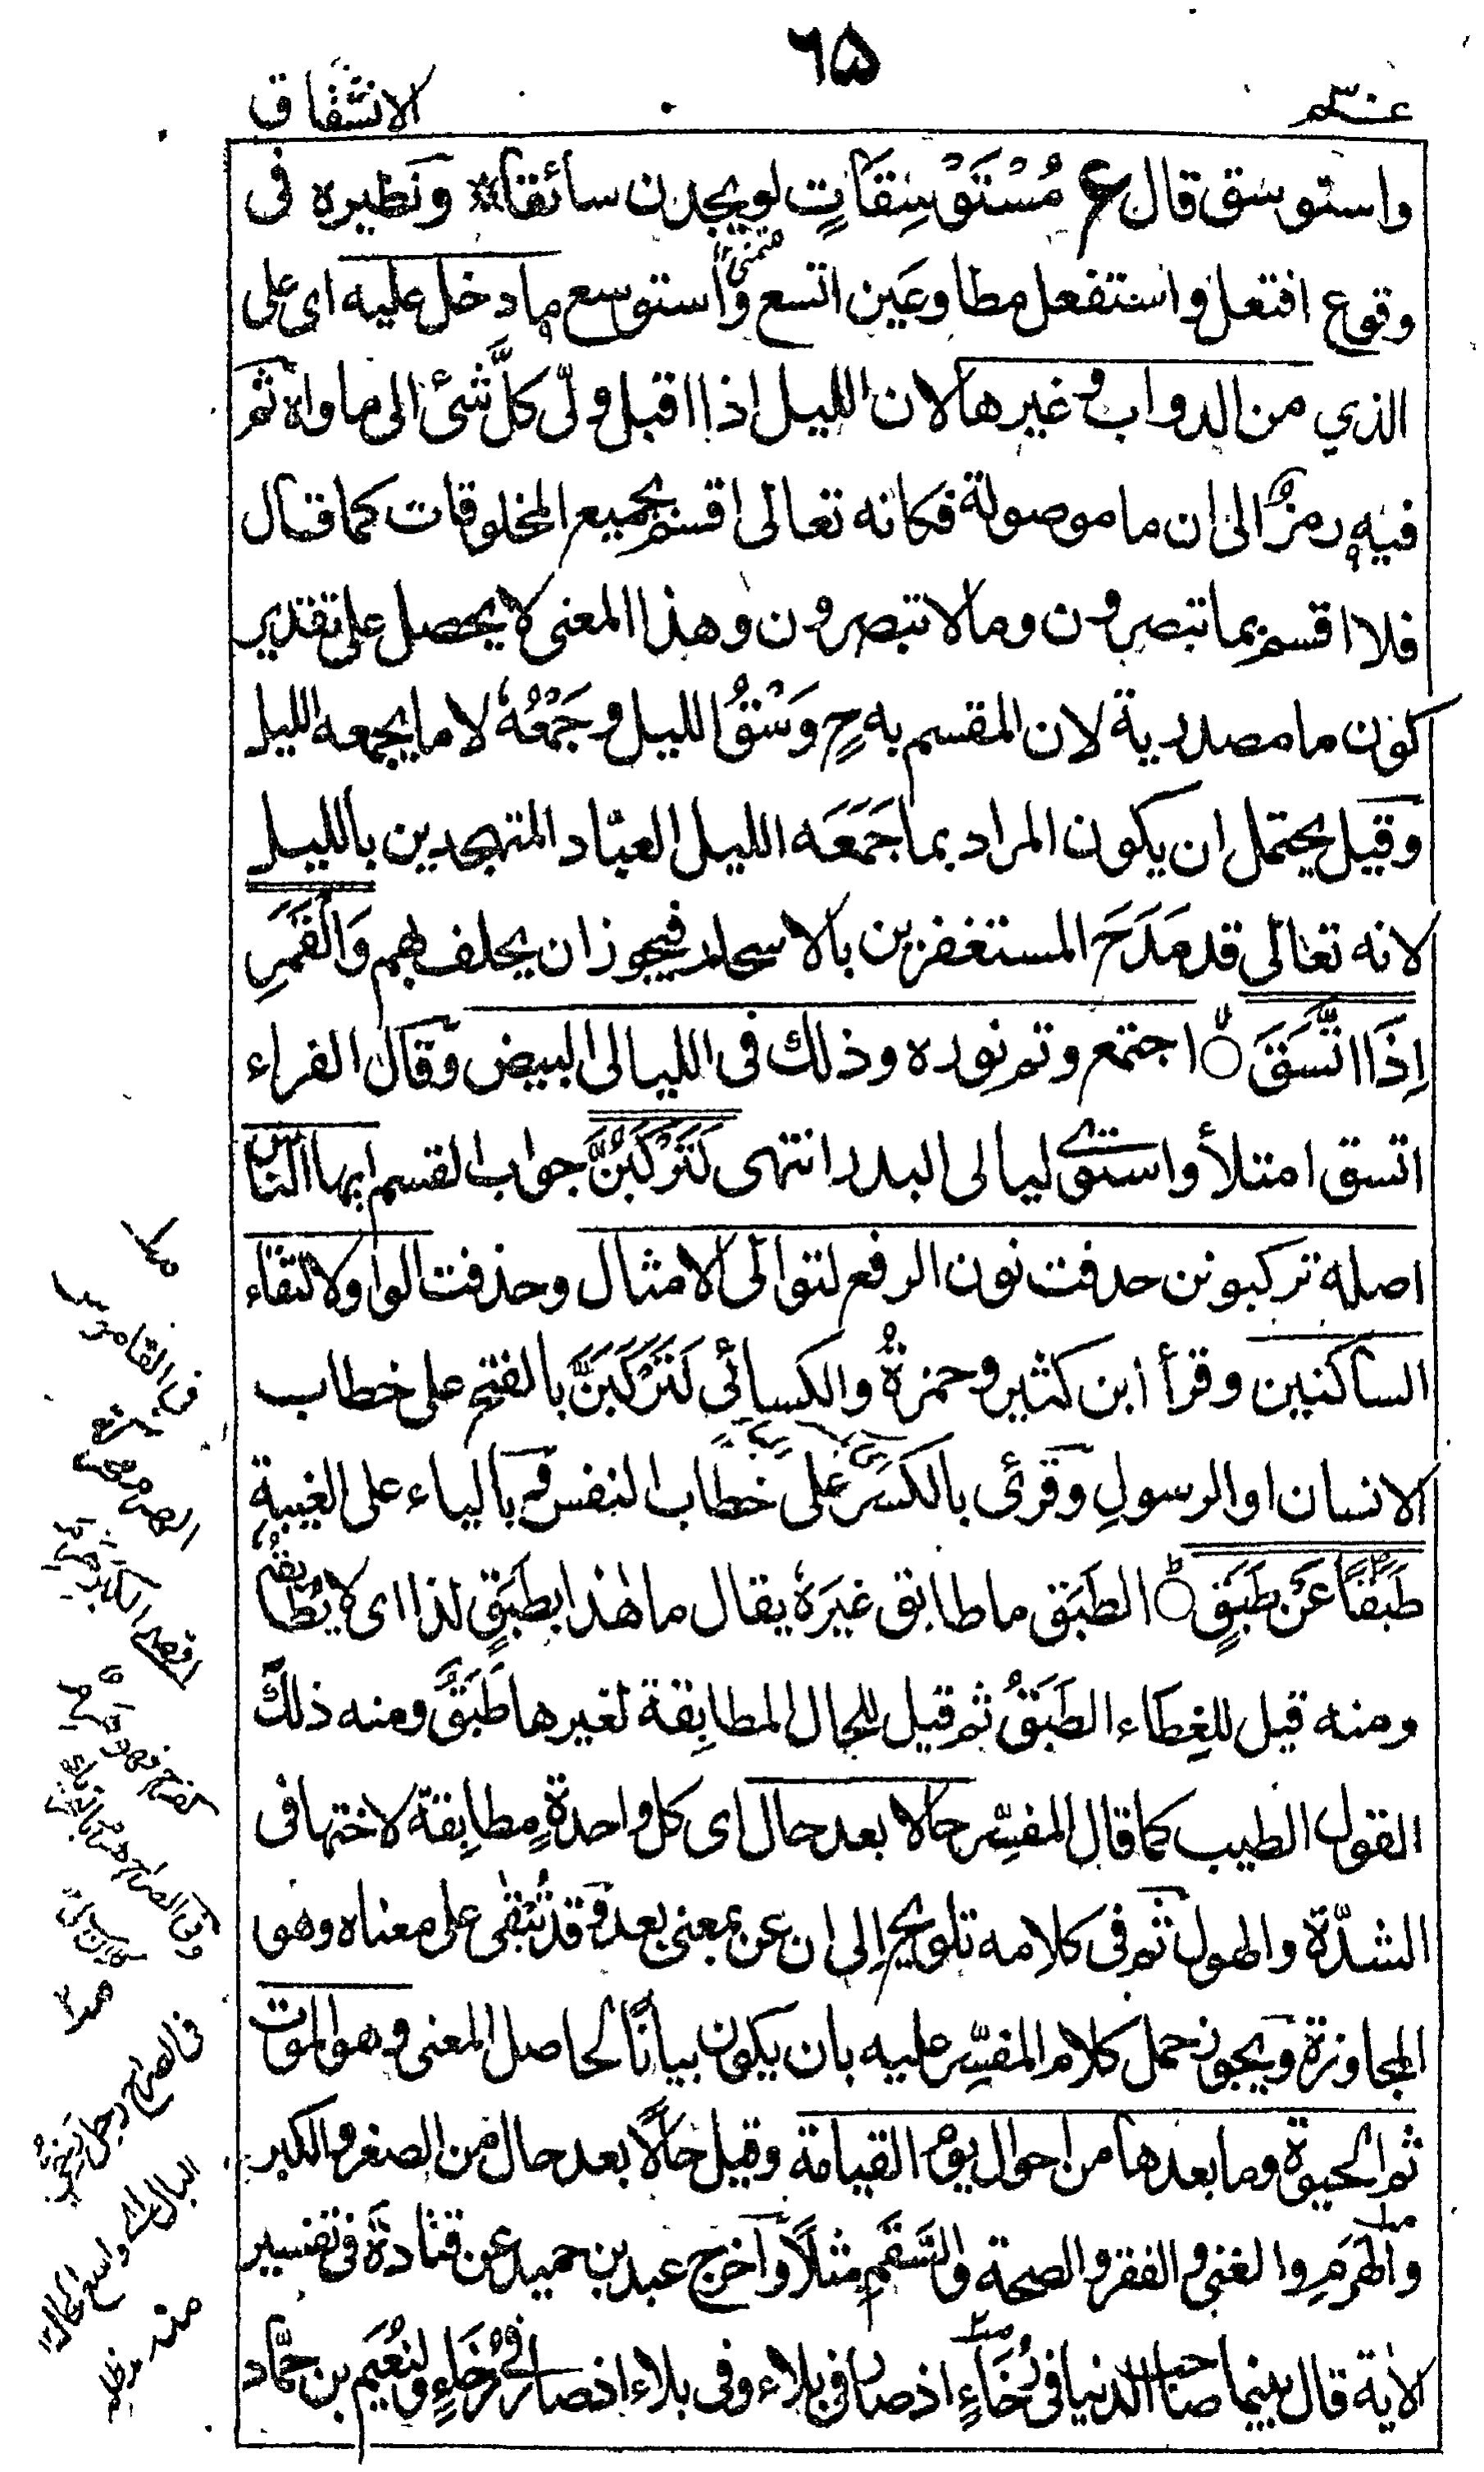 ٦۵
عم
الانشقاق
واستوسق قال ع مُسْتَوْسِقَاتٍ لو يجدن سائقا ونظيره فى
وقوع افتعل واستفعل مطاوعين اتسع واستوسع ما دخل عليه اى على
الذي من الدواب وغيرها لان الليل اذا اقبل ولّى كلّ شئ الى ماواه ثم
فيه رمزٌ الى ان ما موصولة فكانه تعالى اقسم بجميع المخلوقات كما قال
فلا اقسم بما تبصرون وما لا تبصرون وهذا المعنى لا يحصل على تقدير
كون ما مصدرية لان المقسم به ح وَسْقُ الليل وجَمْعُهٗ لا ما يجمعه الليل
وقيل يحتمل ان يكون المراد بما جَمَعَه الليل العبّاد المتهجدين بالليل
لانه تعالى قد مَدَحَ المستغفرين بالاسحار فيجوز ان يحلف بهم وَالْقَمَرِ
اِذَا اتَّسَقَ ○ لا اجتمع وتم نوره وذلك فى الليالى البيض وقال الفراء
اتسق امتلأ واستوى ليالى البدر انتهى لَتَرْكَبُنَّ جواب القسم ايها الناس
اصله تركبونن حذفت نون الرفع لتوالى الامثال وحذفت الواو لالتقاء
الساكنين وقرأ ابن كثير وحمزةُ والكسائى لَتَرْكَبَنَّ بالفتح على خطاب
الانسان او الرسولِ وقرئ بالكسر على خطاب النفس وبالياء على الغيبة
طَبَقًا عَنْ طَبَقٍ ○ ط الطبَق ما طابق غيرَهٗ يقال ما هٰذا بطبَقٍ لذا اى لا يُطابقُهٗ
ومنه قيل للغِطَاء الطَبَقُ ثم قيل للحال المطابِقة لغيرها طَبَقٌ ومنه ذلك
القول الطيب كما قال المفسِّر حالا بعد حال اى كل واحدةٍ مطابِقة لاختها فى
الشدّة والهول ثم فى كلامه تلويح الى ان عن بمعنى بعد وقد تُبْقٰى على معناه وهو
المجاوزة ويجوز حمل كلام المفسِّر عليه بان يكون بيانًا لحاصل المعنى وهو الموت
ثم الحيوة وما بعدها من احوال يوم القيامة وقيل حالًا بعد حال من الصغر والكبر
والهَرَمِ والغنى والفقر والصحة والسَّقَمِ مثلًا وأخرج عبد بن حميد عن قتادةَ فى تفسير
الاٰية قال بينما صاحب الدنيا فى رُخَاءٍ اذ صار فى بلاء وفى بلاء اذ صار فى رُخَاءٍ ولنُعَيم بن حمّاد
فى الصراح رجل
البال اى واسع الحال
منه